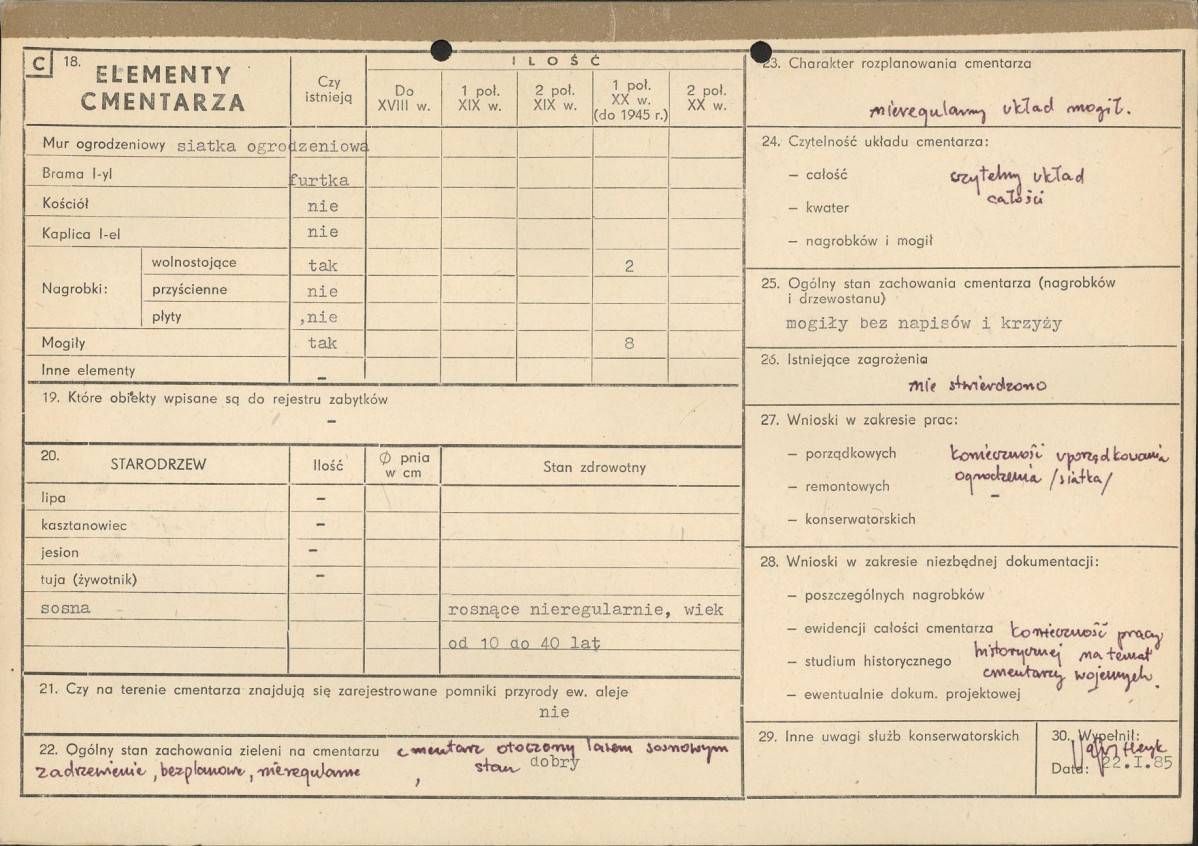 C 18. ELEMENTY CMENTARZA
Czy istnieją
ILOŚĆ
Do XVIII w.
1 poł. XIX w.
2 poł. XIX w.
1 poł. XX w. (do 1945 r.)
2 poł. XX w.
Mur ogrodzeniowy siatka ogrodzeniowa
Brama I-yl furtka
Kościół nie
Kaplica I-el nie
Nagrobki:
wolnostojące tak 2
przyścienne nie
płyty ,nie
Mogiły tak 8
Inne elementy –
19. Które obiekty wpisane są do rejestru zabytków
–
20. STARODRZEW Ilość Ø pnia w cm Stan zdrowotny
lipa –
kasztanowiec –
jesion –
tuja (żywotnik) –
sosna rosnące nieregularnie, wiek
od 10 do 40 lat
21. Czy na terenie cmentarza znajdują się zarejestrowane pomniki przyrody ew. aleje
nie
22. Ogólny stan zachowania zieleni na cmentarzu cmentarz otoczony lasem sosnowym
zadrzewienie, bezplanowe, nieregularne, stan dobry
23. Charakter rozplanowania cmentarza
nieregularny układ mogił.
24. Czytelność układu cmentarza:
– całość czytelny układ
całości
– kwater
– nagrobków i mogił
25. Ogólny stan zachowania cmentarza (nagrobków
i drzewostanu)
mogiły bez napisów i krzyży
26. Istniejące zagrożenia
nie stwierdzono
27. Wnioski w zakresie prac:
– porządkowych konieczność uporządkowania
ogrodzenia /siatka/
– remontowych –
– konserwatorskich
28. Wnioski w zakresie niezbędnej dokumentacji:
– poszczególnych nagrobków
– ewidencji całości cmentarza konieczność pracy
historycznej na temat
– studium historycznego cmentarzy wojennych.
– ewentualnie dokum. projektowej
29. Inne uwagi służb konserwatorskich
30. Wypełnił:
Data: 22.I.85